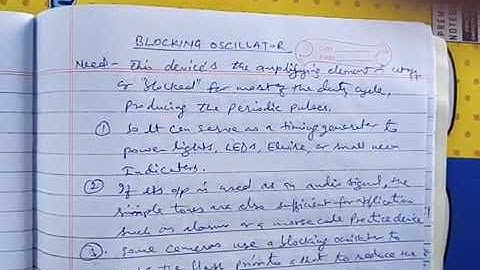 BLOCKING OSCILLATOR
Need:- This device's the amplifying element is cut off
or "blocked" for most of the duty cycle,
Producing the Periodic pulses.
① So It can serve as a timing generator to
power lights, LEDs, Elwire, or small neon
Indicators.
② If its o/p is used as an audio signal, the
simple tones are also sufficient for application
such as alarms or a morse code Practice device
③ Some cameras use a blocking oscillator to
the flash prior to a shot to reduce the